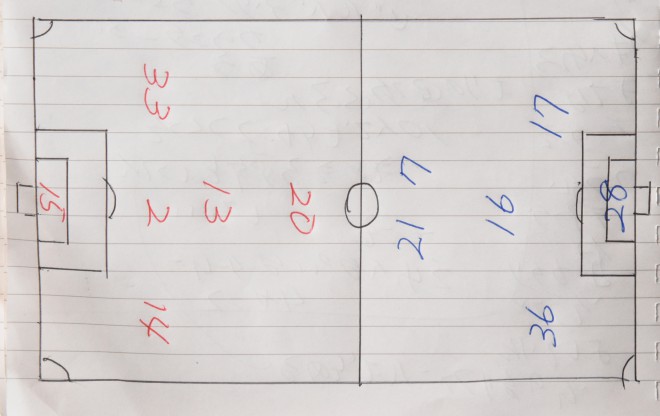 33
17
7
15
2
13
20
21
16
28
14
36